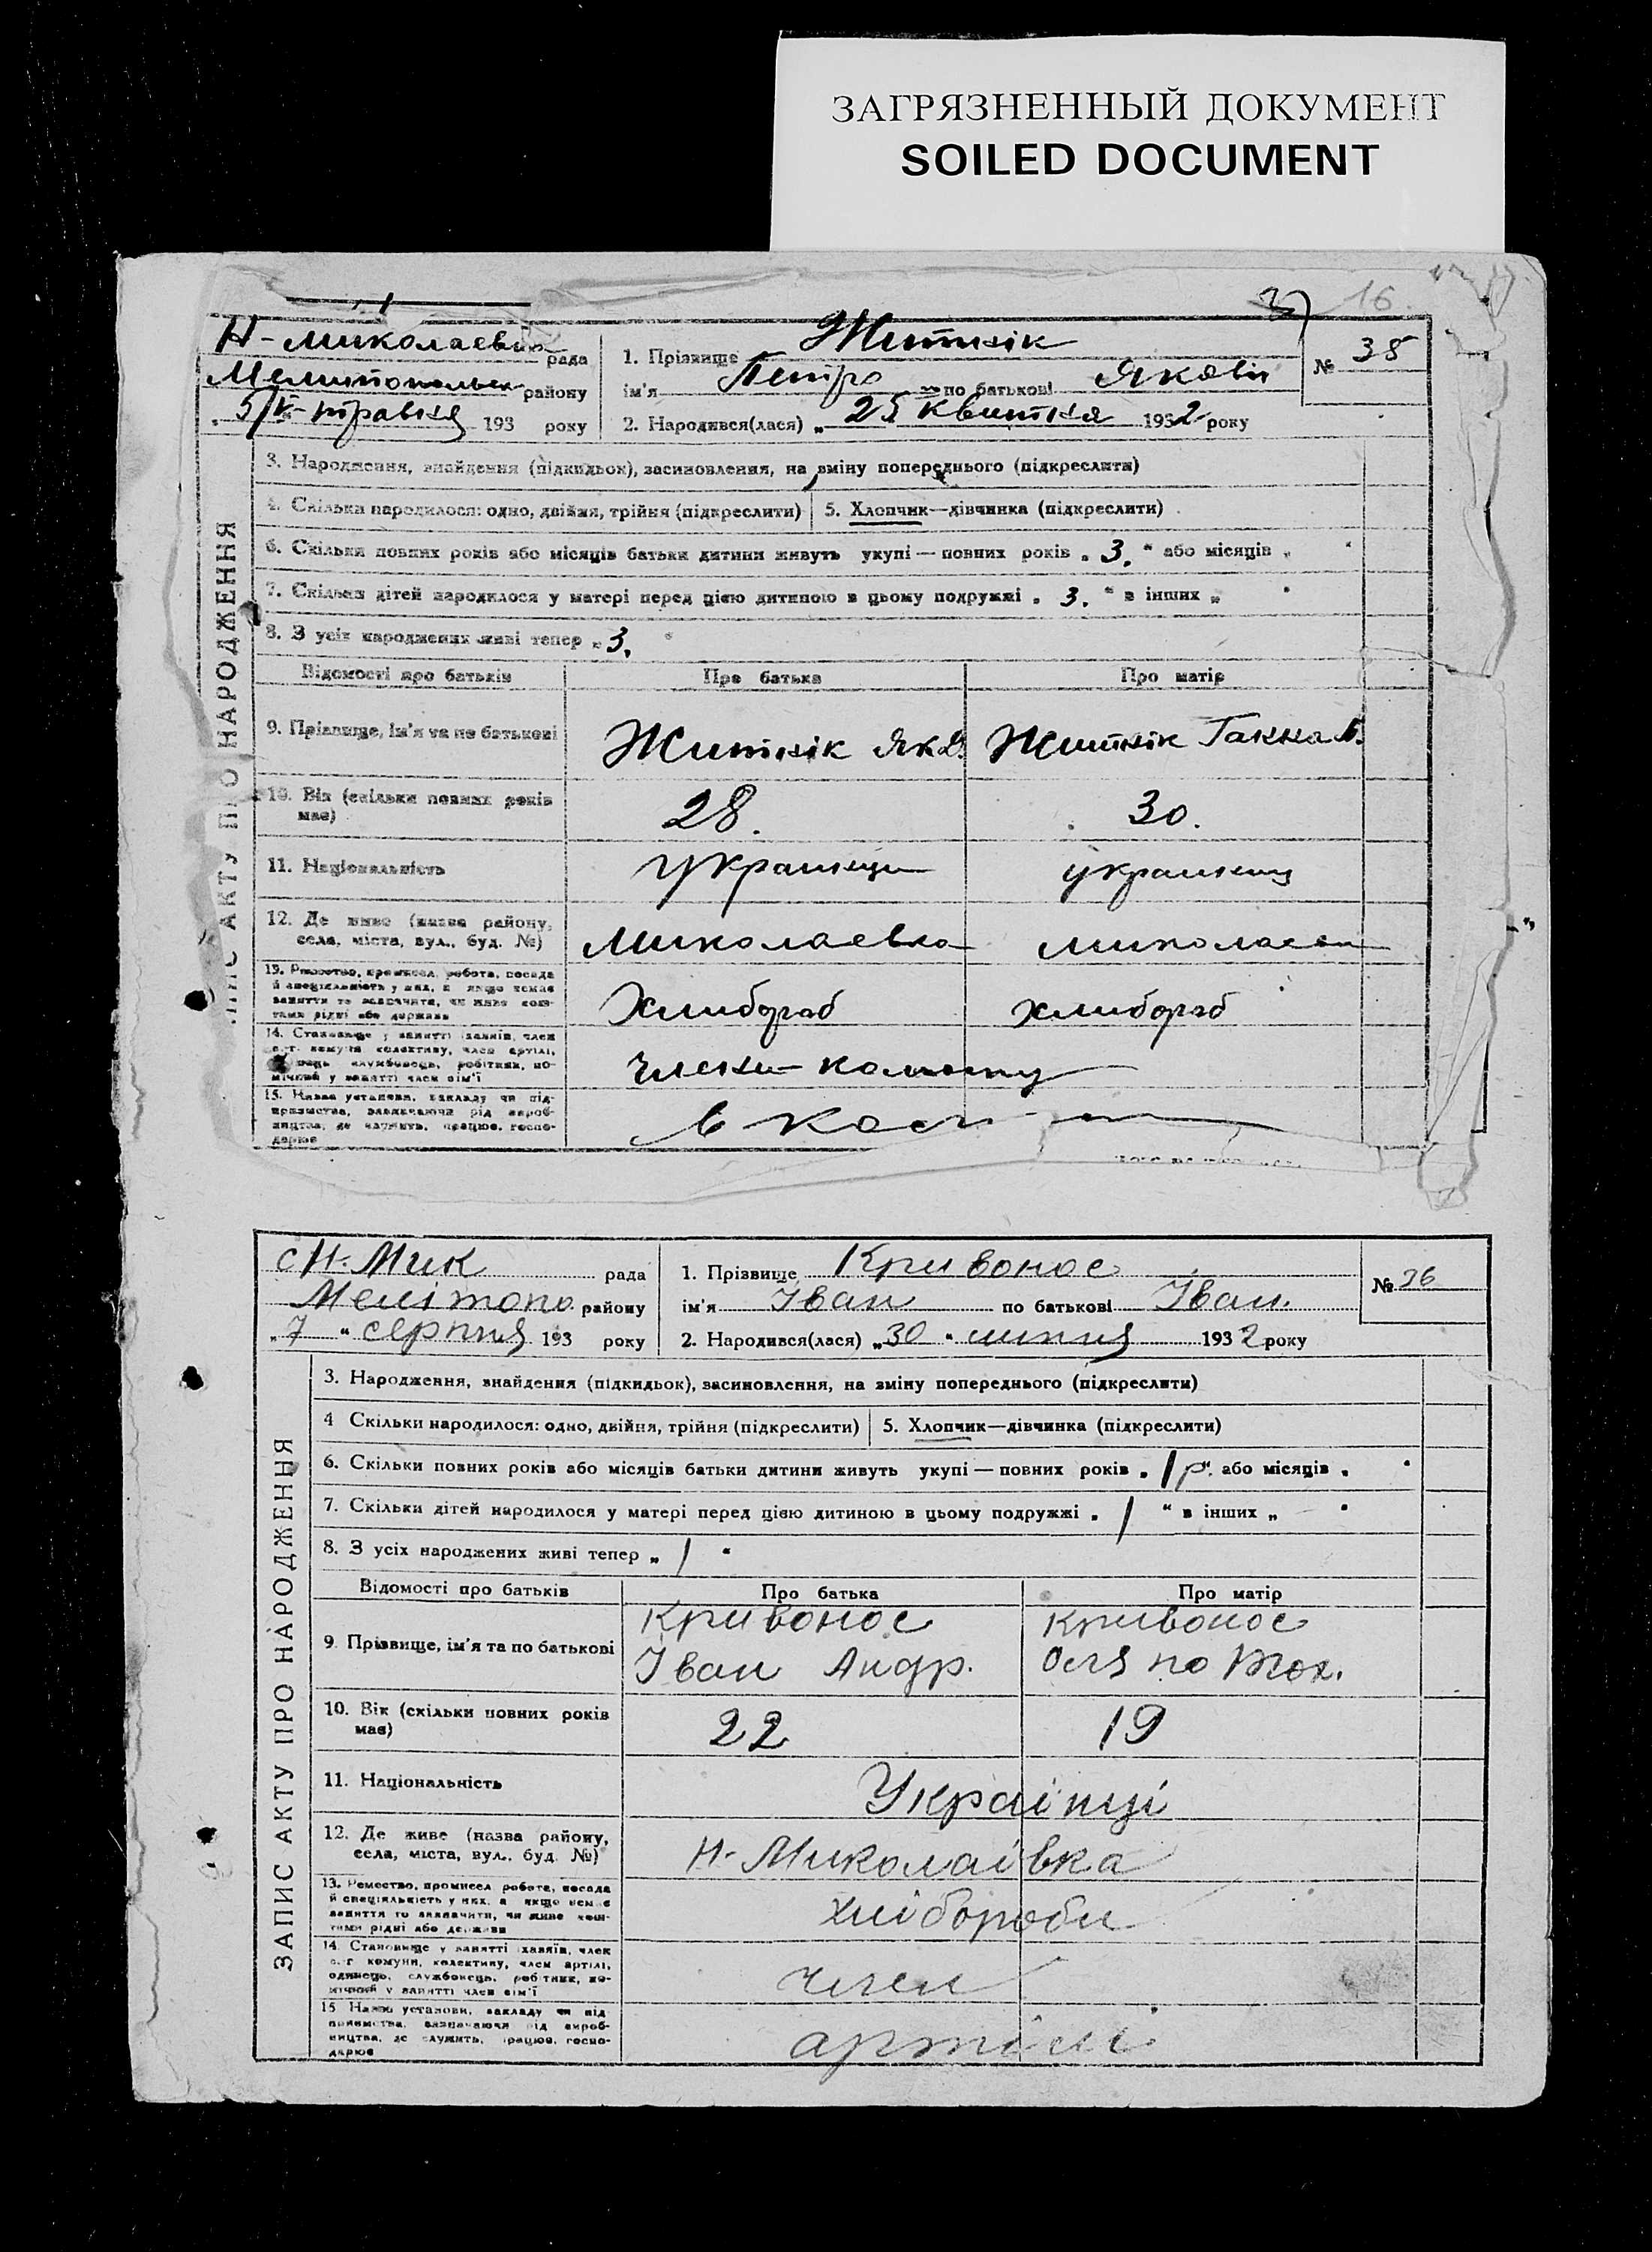 ЗАГРЯЗНЕННЫЙ ДОКУМЕНТ
SOILED DOCUMENT
16
Н-миколаевка рада
района району
193 року
1. Прізвище Житнік
№ 35
ім'я Петро по батькові Якові
2. Народився(лася) „ 25 квитня 1932 року
ЗАПИС АКТУ ПРО НАРОДЖЕННЯ
3. Народження, знайдення (підкидьок), засиновлення, на зміну попереднього (підкреслити)
4. Скільки народилося: одно, двійня, трійня (підкреслити)
5. Хлопчик—дівчинка (підкреслити)
6. Скільки повних років або місяців батьки дитини живуть укупі — повних років „ 3. “ або місяців „ “
7. Скільки дітей народилося у матері перед цією дитиною в цьому подружжі „ 3. “ в інших „ “
8. З усіх народжених живі тепер „ 3. “
Відомості про батьків Про батька Про матір
9. Прізвище, ім'я та по батькові Житнік Як Д. Житнік Ганна
10. Вік (скільки повних років має) 28. 30.
11. Національність украинци украинц
12. Де живе (назва району, села, міста, вул., буд. №) Миколаевка миколаевка
13. Ремество, промисел, робота, посада й спеціяльність у них, а якщо немає заняття то зазначити, чи живе коштами рідні або держави Хлибороб хлибороб
14. Становище у занятті (хазяїн, член с.-г. комуни, колективу, член артілі, одинець, службовець, робітник, помічний у занятті член сім'ї
15. Назва установи, закладу чи підприємства, зазначаючи рід виробництва, де служить, працює, господарює
с Н-Мик рада
Мелітопо району
„ 7 “ серпня 193 року
1. Прізвище Кривонос
№ 36
ім'я Іван по батькові Іван.
2. Народився(лася) „ 30 “ липня 1932 року
ЗАПИС АКТУ ПРО НАРОДЖЕННЯ
3. Народження, знайдення (підкидьок), засиновлення, на зміну попереднього (підкреслити)
4 Скільки народилося: одно, двійня, трійня (підкреслити)
5. Хлопчик—дівчинка (підкреслити)
6. Скільки повних років або місяців батьки дитини живуть укупі — повних років „ 1 р “. або місяців „ “
7. Скільки дітей народилося у матері перед цією дитиною в цьому подружжі „ 1 “ в інших „ “
8. З усіх народжених живі тепер „ 1 “
Відомості про батьків Про батька Про матір
9. Прізвище, ім'я та по батькові
Кривонос Кривонос
Іван Андр. Оля по
10. Вік (скільки повних років має) 22 19
11. Національність Українці
12. Де живе (назва району, села, міста, вул., буд. №) Н-Миколаївка
13. Ремество, промисел, робота, посада й спеціяльність у них, а якщо немає заняття то зазначити, чи живе коштами рідні або держави хлібороби
14. Становище у занятті (хазяїн, член с.-г. комуни, колективу, член артілі, одинець, службовець, робітник, помічний у занятті член сім'ї член
15 Назва установи, закладу чи підприємства, зазначаючи рід виробництва, де служить, працює, господарює артілі